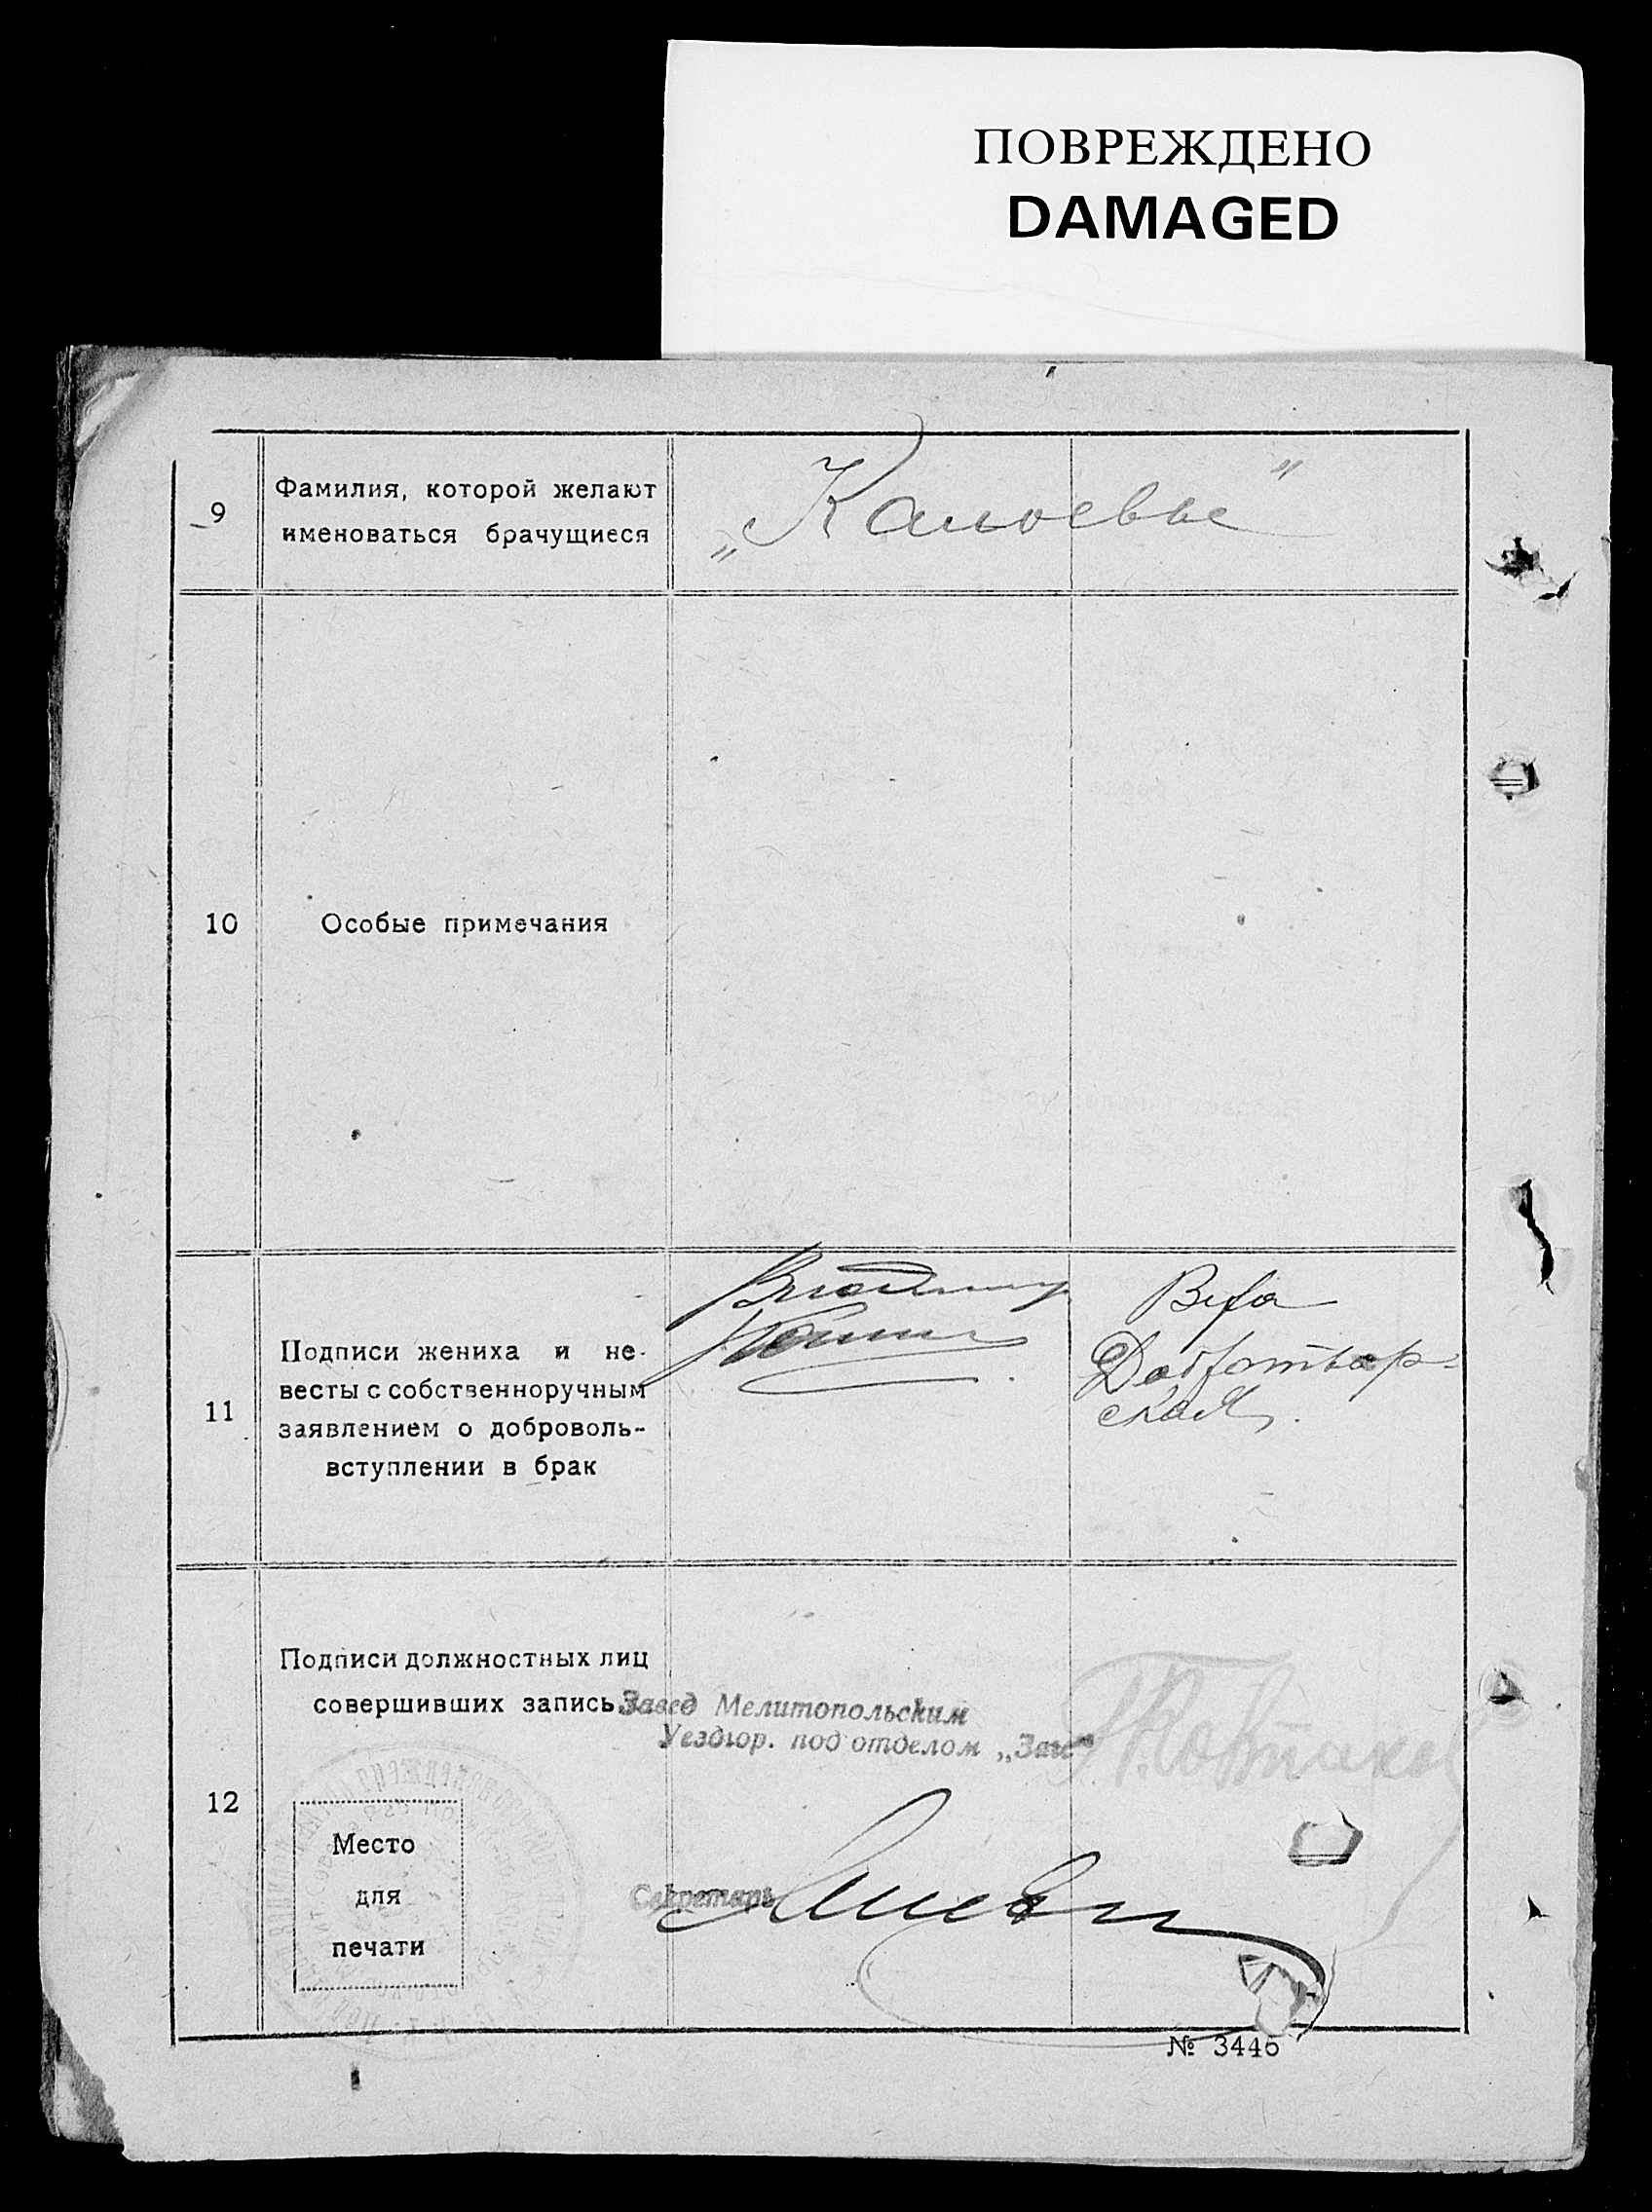 ПОВРЕЖДЕНО
DAMAGED
9
Фамилия, которой желают
именоваться брачущиеся
10
Особые примечания
11
Подписи жениха и не-
весты с собственноручным
заявлением о доброволь-
вступлении в брак
Владимир
Вера
Добротвор-
ская
12
Подписи должностных лиц
совершивших запись
Завед Мелитопольским
Уездгор. под отделом „Загс“
Место
для
печати
Секретарь
№ 3446